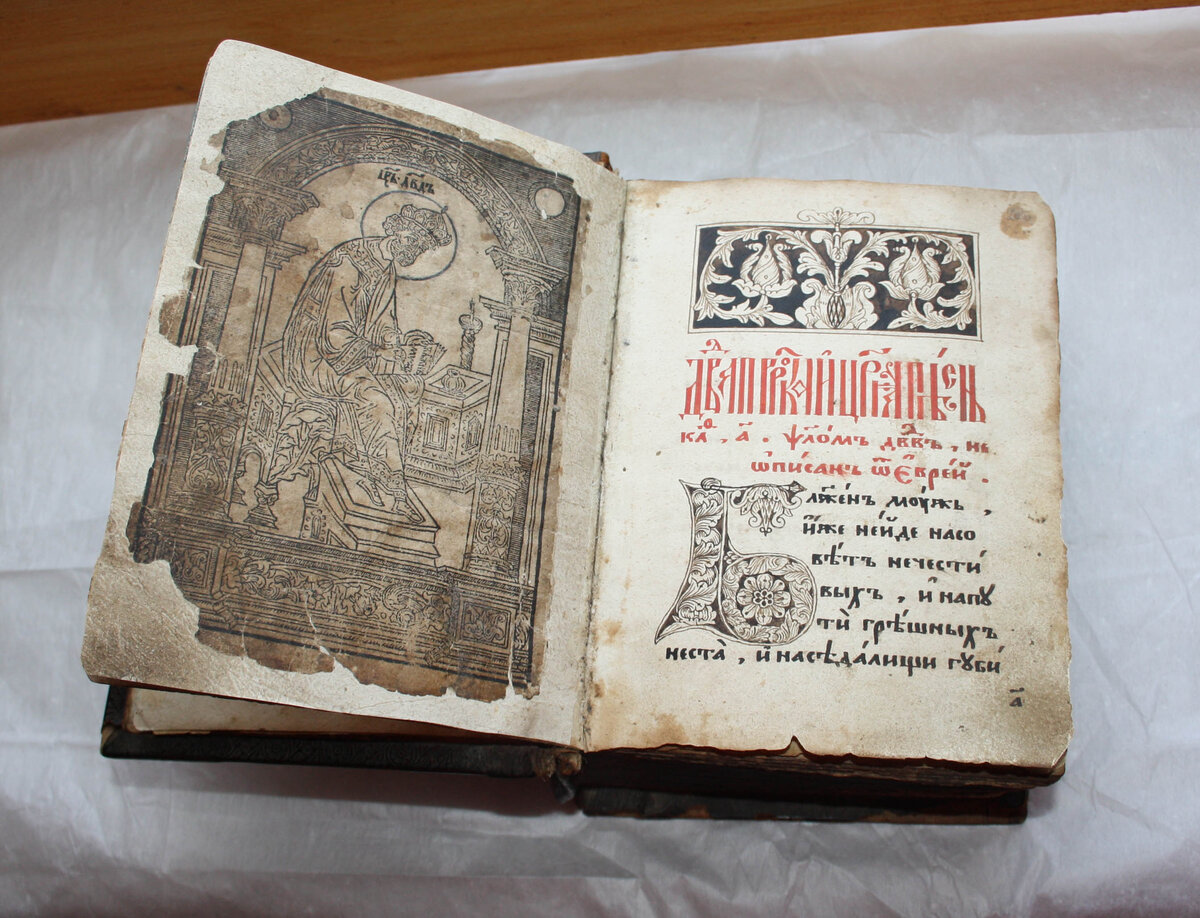 црь· двдъ
Двда прⷪрка и цр҃ѧ пѣсн
каⷴ, а҃ . ѱло́мъ двⷣвъ , не
ѡ҆писанъ ѿ є҆врє́й .
Бл҃же́нъ моу́жъ ,
и҆́же не и҆́де на со
вѣ́тъ нечести́
выхъ , и҆ на пꙋ
ти̑ грѣ́шныхъ
не ста̀ , и҆ на сѣда́лищи гꙋби́
а҃